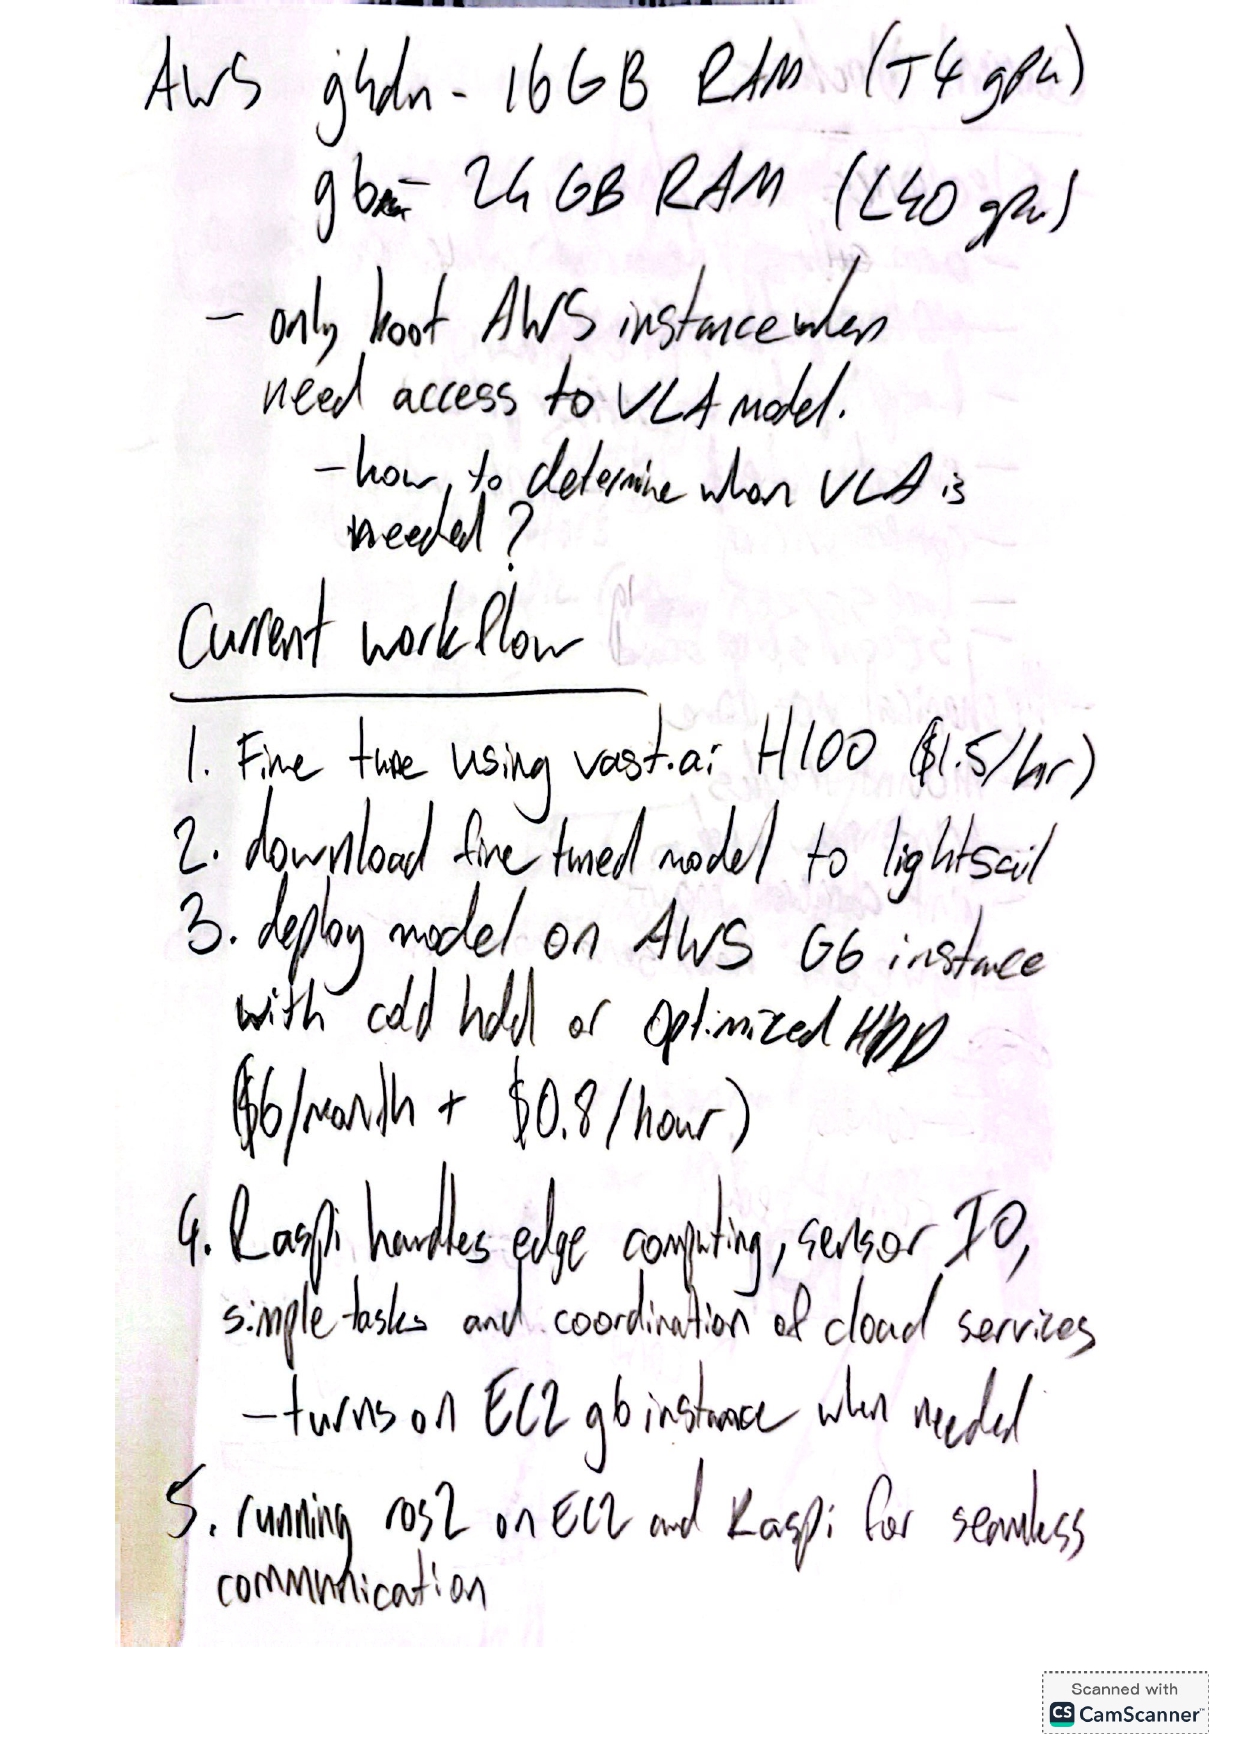 AWS g4dn - 16GB RAM (T4 gpu)
g6 - 24 GB RAM (L40 gpu)
- only boot AWS instance when
need access to VLA model.
- how to determine when VLA is
needed?
Current workflow
1. Fine tune using vast.ai H100 ($1.5/hr)
2. download fine tuned model to lightsail
3. deploy model on AWS G6 instance
with cold hdd or optimized HDD
($6/month + $0.8/hour)
4. Raspi handles edge computing, sensor IO,
simple tasks and coordination of cloud services
- turns on EC2 g6 instance when needed
5. running ros2 on EC2 and Raspi for seamless
communication
Scanned with
CS CamScanner